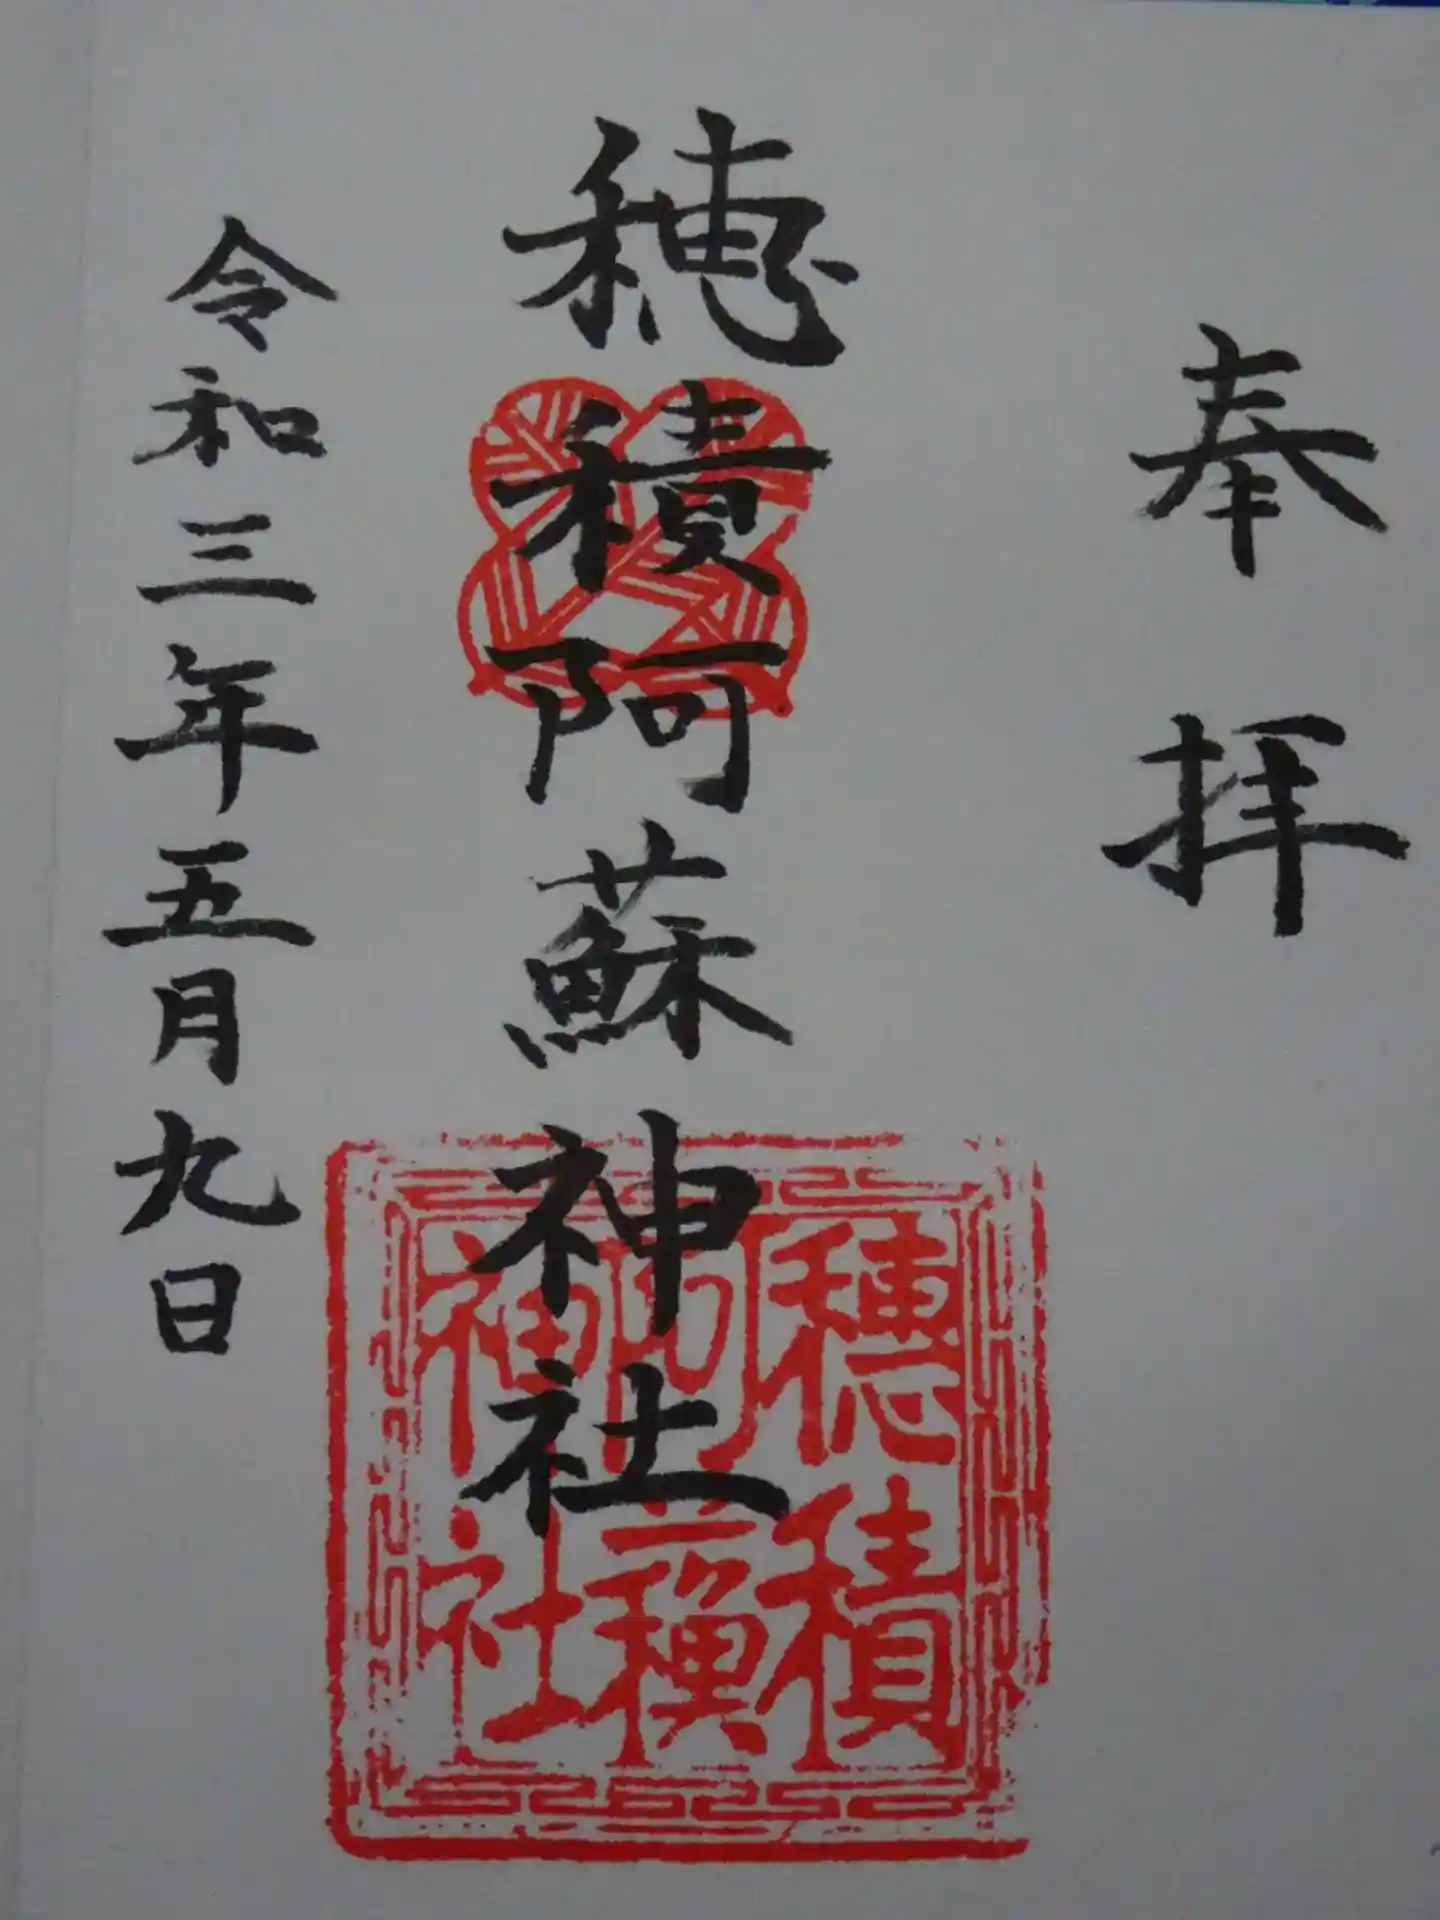 奉拝
穂積阿蘇神社
令和三年五月九日
穂積
阿蘇
神社